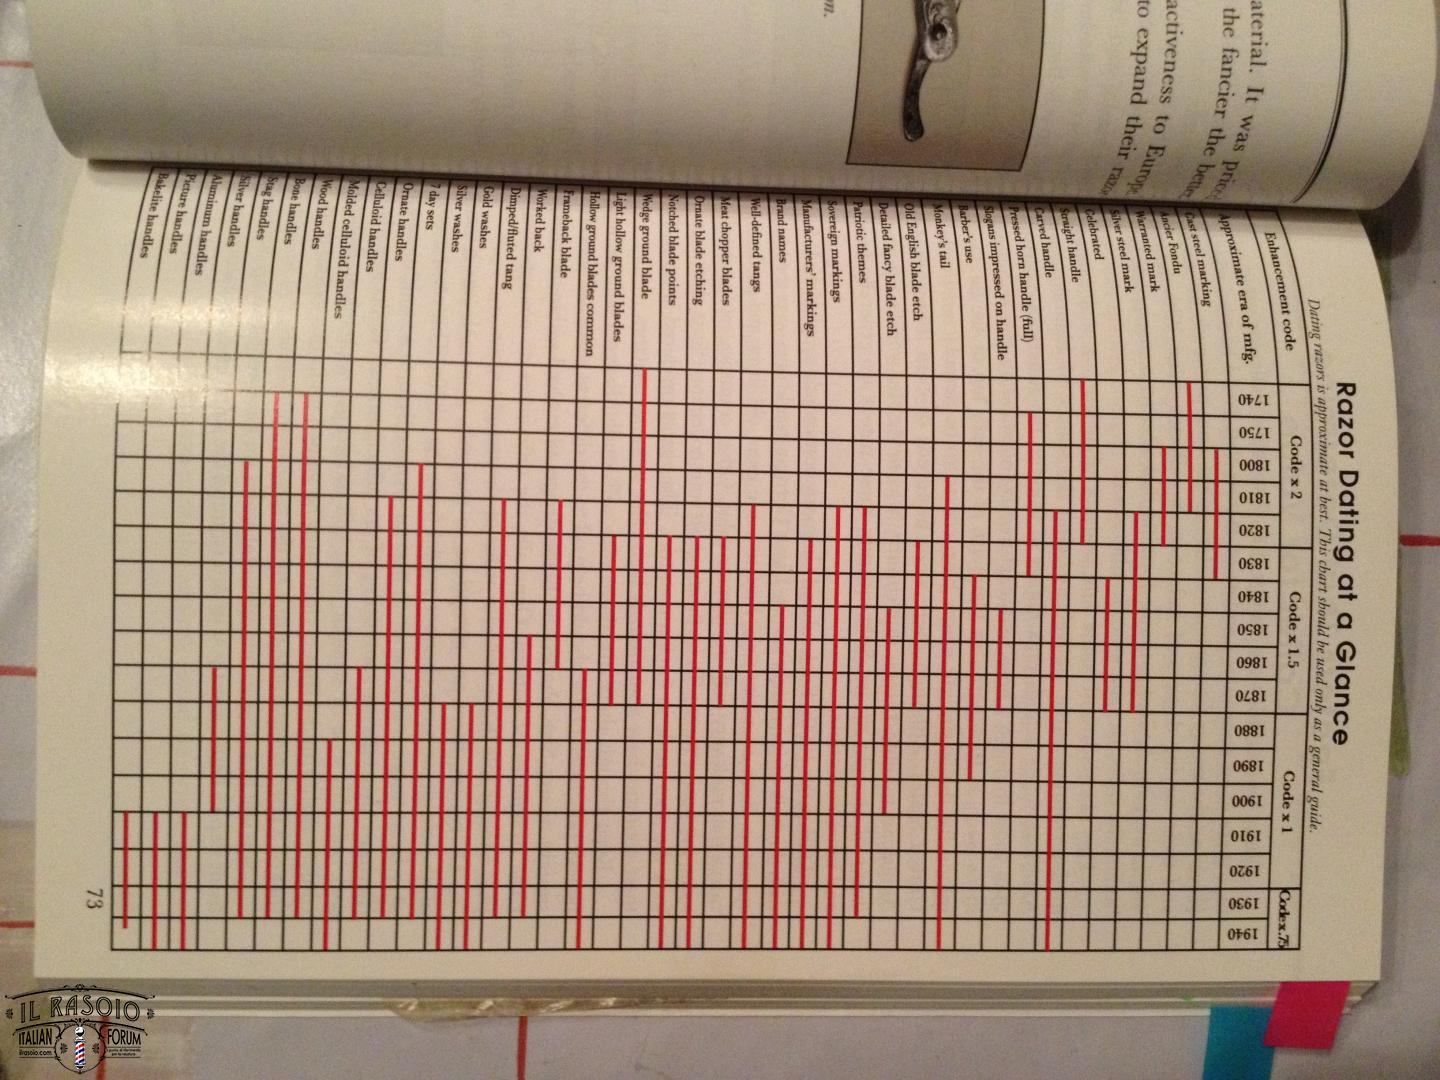 aterial. It was
the fancier the
activeness to
to expand their
Razor Dating at a Glance
Dating razors is approximate at best. This chart should be used only as a general guide.
Enhancement code Code x 2 Code x 1.5 Code x 1 Code x .75
Approximate era of mfg. 1740 1750 1800 1810 1820 1830 1840 1850 1860 1870 1880 1890 1900 1910 1920 1930 1940
Cast steel marking
Ancier Fondu
Warranted mark
Silver steel mark
Celebrated
Straight handle
Carved handle
Pressed horn handle (full)
Slogans impressed on handle
Barber's use
Monkey's tail
Old English blade etch
Detailed fancy blade etch
Patriotic themes
Sovereign markings
Manufacturers' markings
Brand names
Well-defined tangs
Meat chopper blades
Ornate blade etching
Notched blade points
Wedge ground blade
Light hollow ground blades
Hollow ground blades common
Frameback blade
Worked back
Dimped/fluted tang
Gold washes
Silver washes
7 day sets
Ornate handles
Celluloid handles
Molded celluloid handles
Wood handles
Bone handles
Stag handles
Silver handles
Aluminum handles
Picture handles
Bakelite handles
73
IL RASOIO
ITALIAN FORUM
ilrasoio.com